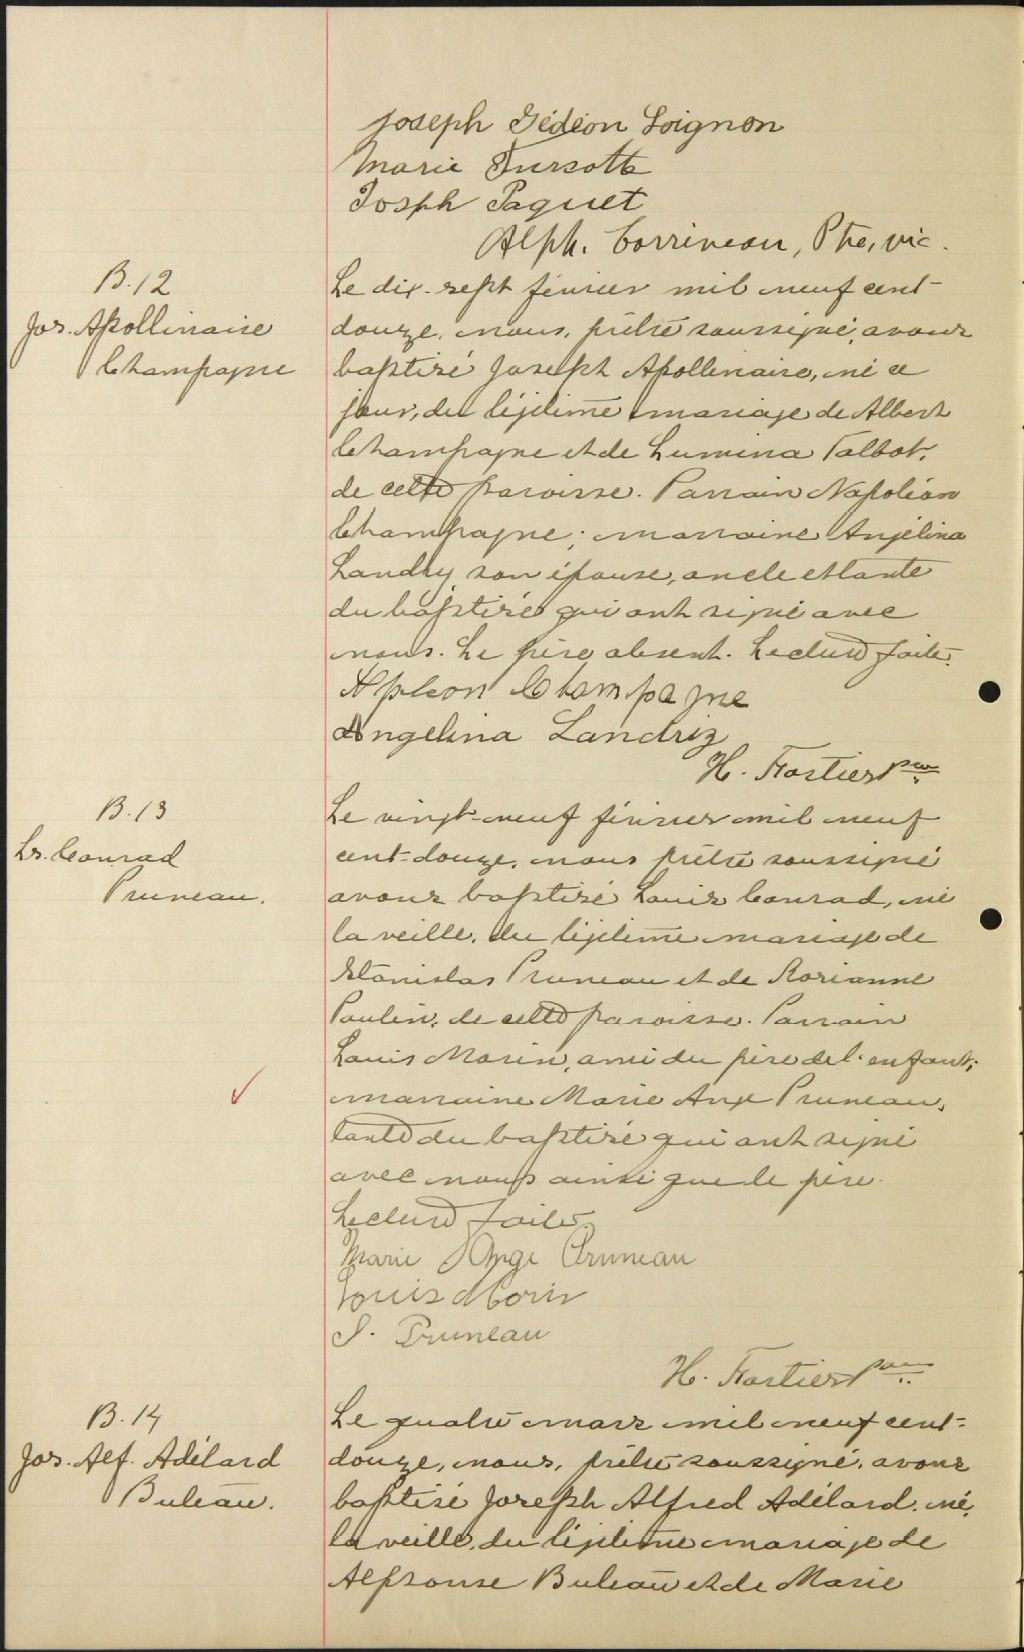 Joseph Gédéon Loignon
Marie Turcotte
Joseph Paquet
Alph. Corriveau, Ptre, vic.
B. 12
Jos. Apollinaire
Champagne
Le dix-sept février mil neuf cent-
douze, nous, prêtre soussigné, avons
baptisé Joseph Apollinaire, né ce
jour, du légitime mariage de Albert
Champagne et de Lumina Talbot,
de cette paroisse. Parrain Napoléon
Champagne; marraine Angélina
Landry, son épouse, oncle et tante
du baptisé qui ont signé avec
nous. Le père absent. Lecture faite.
Champagne
Angelina Landry
H. Fortier
B. 13
Ls. Conrad
Pruneau.
Le vingt-neuf février mil neuf
cent-douze, nous prêtre soussigné
avons baptisé Louis Conrad, né
la veille, du légitime mariage de
Stanislas Pruneau et de Rosianne
Poulin, de cette paroisse. Parrain
Louis Morin, ami du père de l'enfant;
marraine Marie Ange Pruneau,
tante du baptisé qui ont signé
avec nous ainsi que le père.
Lecture faite.
Marie Ange Pruneau
Louis Morin
S. Pruneau
H. Fortier
B. 14
Jos. Alf. Adélard
Buteau.
Le quatre mars mil neuf cent-
douze, nous, prêtre soussigné, avons
baptisé Joseph Alfred Adélard, né,
la veille, du légitime mariage de
Alphonse Buteau et de Marie